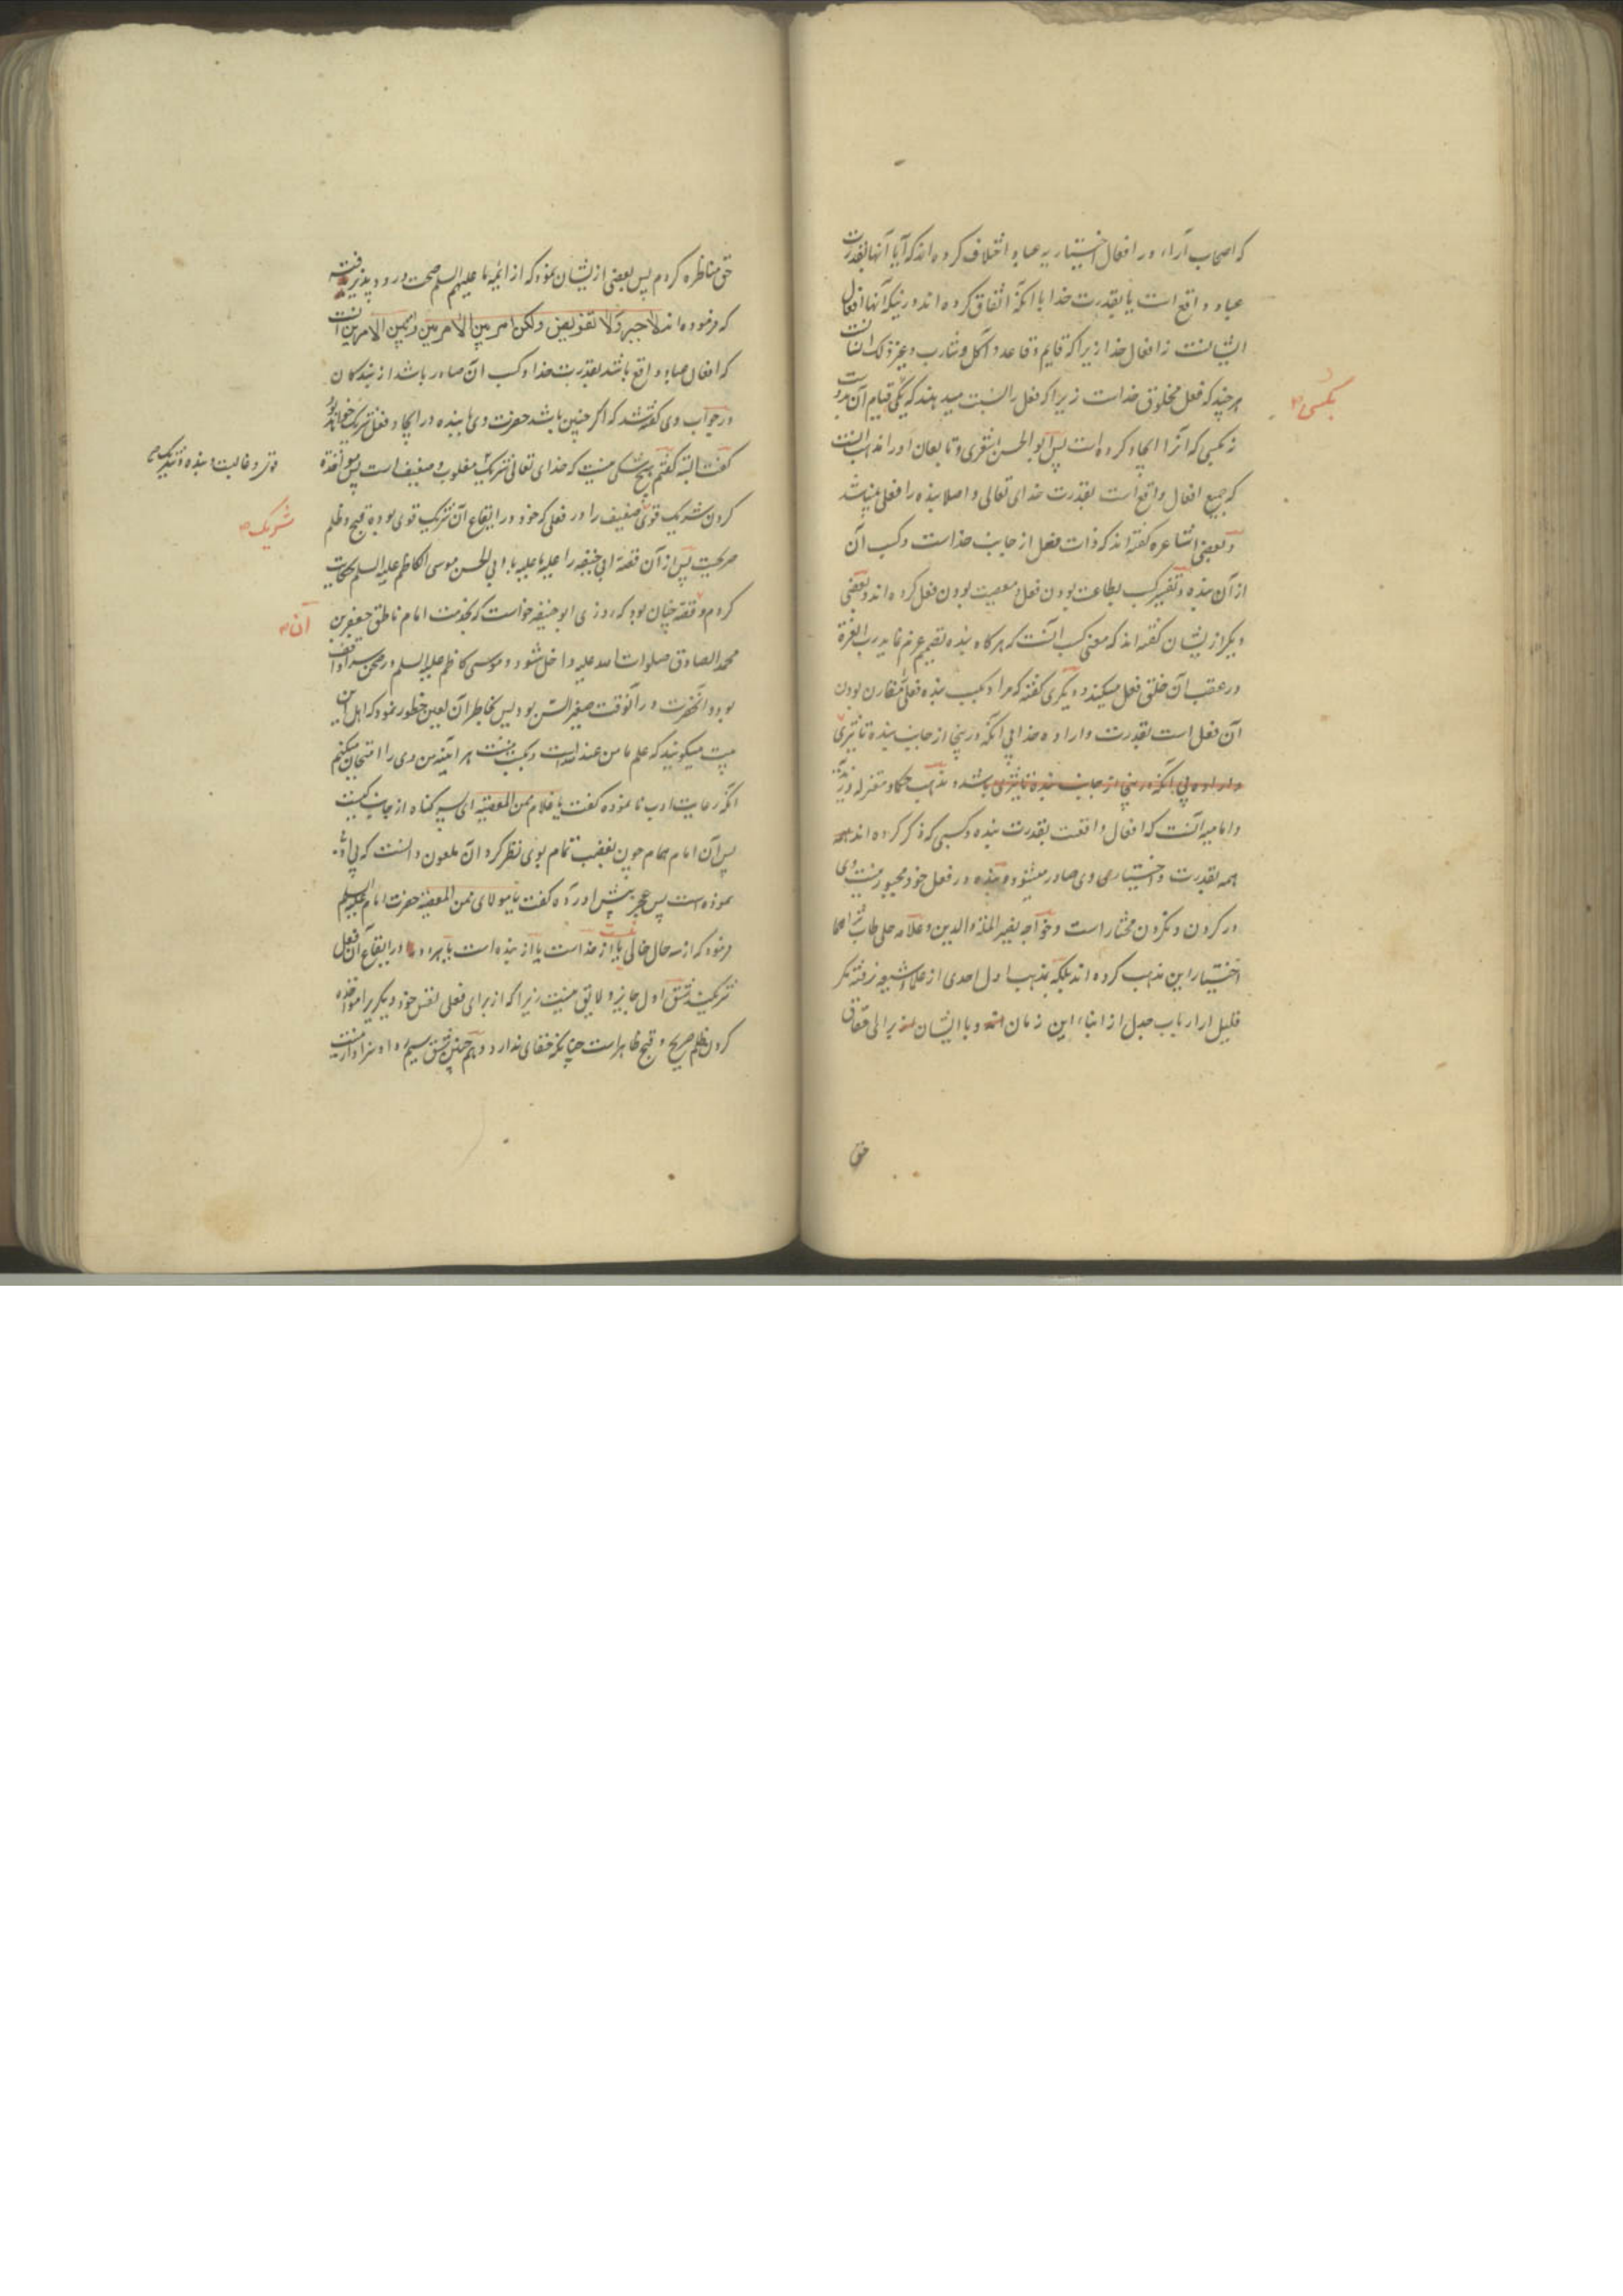 که اصحاب آراء در افعال اختیاریه عباد اختلاف کرده اند که آیا آنها بقدرت
عباد واقع است یا بقدرت خدا با آنکه اتفاق کرده اند در اینکه آنها افعال
ایشانست نه افعال خدا زیرا که قایم و قاعد و آکل و شارب و غیر ذلک انسانست
هر چند که فعل مخلوق خداست زیرا که فعل را نسبت میدهند که یکی قیام آن بدوست
بکسی
نه بکسی که آنرا ایجاد کرده است پس ابو الحسن اشعری و تابعان او را مذهب آنست
که جمیع افعال واقع است بقدرت خدای تعالی و اصلا بنده را فعلی نمیباشد
و بعضی اشاعره گفته اند که ذات فعل از جانب خداست و کسب آن
از آن بنده و تفسیر کسب بطاعت بودن فعل و معصیت بودن فعل کرده اند و بعضی
دیگر از یشان گفته اند که معنی کسب آنست که هر گاه بنده تصمیم عزم نماید رب العزة
در عقب آن خلق فعل میکند و دیگری گفته که مراد بکسب بنده فعلی را مقارن بودن
آن فعل است بقدرت و اراده خدا بی آنکه درینجا از جانب بنده تاثیری
و اراده بی آنکه درینجا از جانب بنده تاثیری باشد و مذهب حکما و معتزله و زیدیه
و امامیه آنست که افعال واقعست بقدرت بنده و کسبی که ذکر کرده اند
همه بقدرت و اختیاری وی صادر میشود و بنده در فعل خود مجبور نیست وی
در کردن و نکردن مختار است و خواجه نصیر الملة والدین و علامه حلی طاب ثراهما
اختیار این مذهب کرده اند بلکه بمذهب اول احدی از علماء شیعه نرفته مگر
قلیل از ارباب جدل از ابناء این زمان و با ایشان
حق
حق مناظره کردم پس بعضی از یشان نمود که از ائمه ما علیهم السلم صحت ورود پذیرفته
که فرموده اند لا جبر ولا تفویض ولکن امر بین الامرین و بین الامرین آنست
که افعال عباد واقع باشد بقدرت خدا و کسب آن صادر باشد از بندگان
در جواب وی گفته شد که اگر چنین باشد حضرت وی با بنده در ایجاد فعل شریک خواهد بود
گفت البته گفتم هیچ شکی نیست که خدای تعالی شریک مغلوب و ضعیف است پس مؤاخذه
قوی و غالبست و بنده شریک
کردن شریک قوی ضعیف را در فعلی که خود در ایقاع آن شریک قوی بوده قبیح و ظلم
شریک
صریحست پس از آن قصه ابی حنیفه را علیه ما علیه با ابی الحسن موسی الکاظم علیه السلم حکایت
کردم و قصه چنان بود که روزی ابو حنیفه خواست که بخدمت امام ناطق جعفر بن
آن
محمد الصادق صلوات الله علیه داخل شود و موسی کاظم علیه السلم در صحن سرا واقف
بود و آنحضرت در آنوقت صغیر السن بود پس بخاطر آن لعین خطور نمود که اهل این
بیت میگویند که علم ما من عند الله است و بکسب نیست هر آینه من وی را امتحان میکنم
آنکه رعایت ادب نا نموده گفت یا غلام ممن المعصیة ای پسر گناه از جانب کیست
پس آن امام همام چون بغضب تمام بوی نظر کرد آن ملعون دانست که بی ادبی
نموده است پس عجز پیش آورده گفت یا مولای ممن المعصیة حضرت امام علیه السلم
فرمود که از سه حال خالی نیست یا از خداست یا از بنده است یا هر دو در ایقاع آن فعل
شریکند شق اول جایز و لایق نیست زیرا که از برای فعلی نفس خود دیگریرا مؤاخذه
کردن ظلم صریح و قبح ظاهر است چنانکه خفای ندارد و همچنین شق سیم را او سزاوار نیست